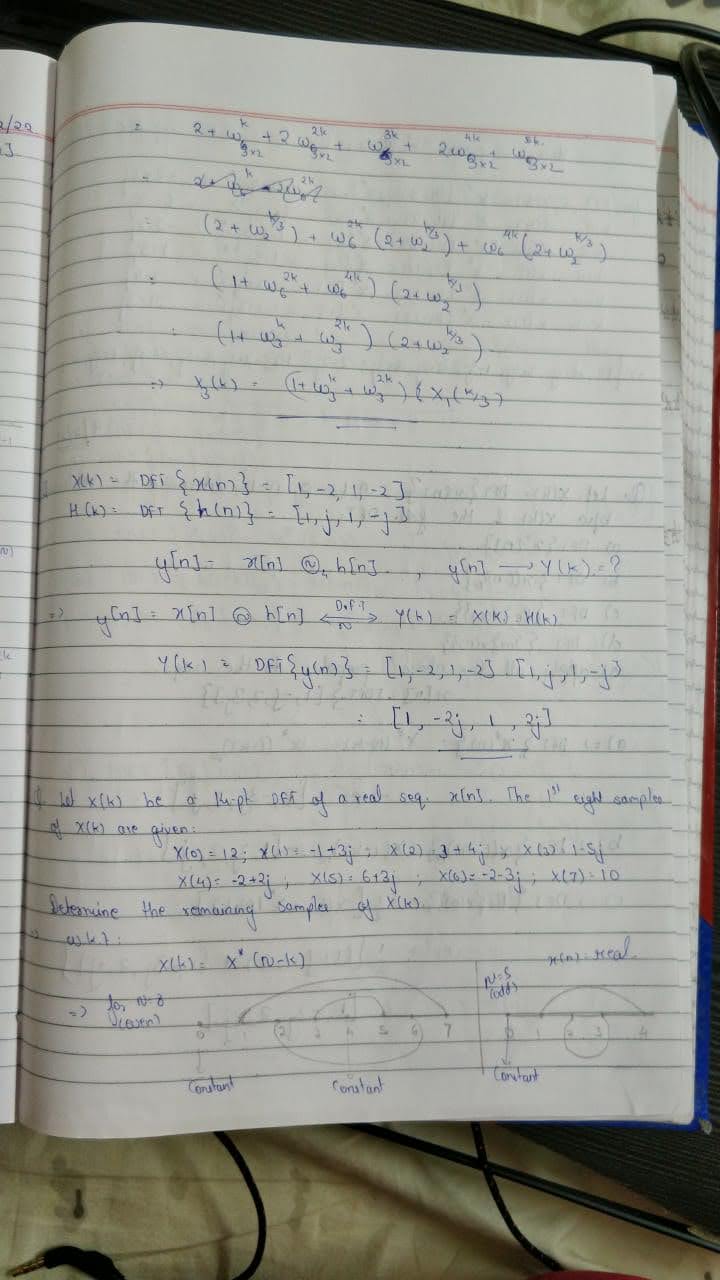 2/22
= 2 + ω^k_{3×2} + 2ω^{2k}_{3×2} + ω^{3k}_{3×2} + 2ω^{4k}_{3×2} + ω^{5k}_{3×2}
= (2 + ω_2^{k/3}) + ω_6^{2k} (2 + ω_2^{k/3}) + ω_6^{4k} (2 + ω_2^{k/3})
= (1 + ω_6^{2k} + ω_6^{4k}) (2 + ω_2^{k/3})
= (1 + ω_3^k + ω_3^{2k}) (2 + ω_2^{k/3})
=> X_3(k) = (1 + ω_3^k + ω_3^{2k}) { X_1(k/3)
X(k) = DFT {x(n)} = [1, -2, 1, -2]
H(k) = DFT {h(n)} = [1, j, 1, -j]
y[n] = x[n] Ⓝ_4 h[n] , y[n] → Y(k) = ?
=> y[n] = x[n] Ⓝ h[n] ⟷ DFT N Y(k) = X(k) · H(k)
Y(k) = DFT{y(n)} = [1, -2, 1, -2] · [1, j, 1, -j]
= [1, -2j, 1, 2j]
Q Let X(k) be a 14-pt DFT of a real seq. x[n]. The 1st eight samples
of X(k) are given:
X(0) = 12; X(1) = -1+3j ; X(2) 3+4j ; X(3) 1-5j
X(4) = -2+2j ; X(5) = 6+3j ; X(6) = -2-3j ; X(7) = 10
Determine the remaining samples of X(k).
=> w.k.t:
X(k) = X*(N-k) x(n) = real
=> for N=8 (even) 0 1 2 3 4 5 6 7 N=5 (odd) 0 1 2 3 4
Constant Constant Constant